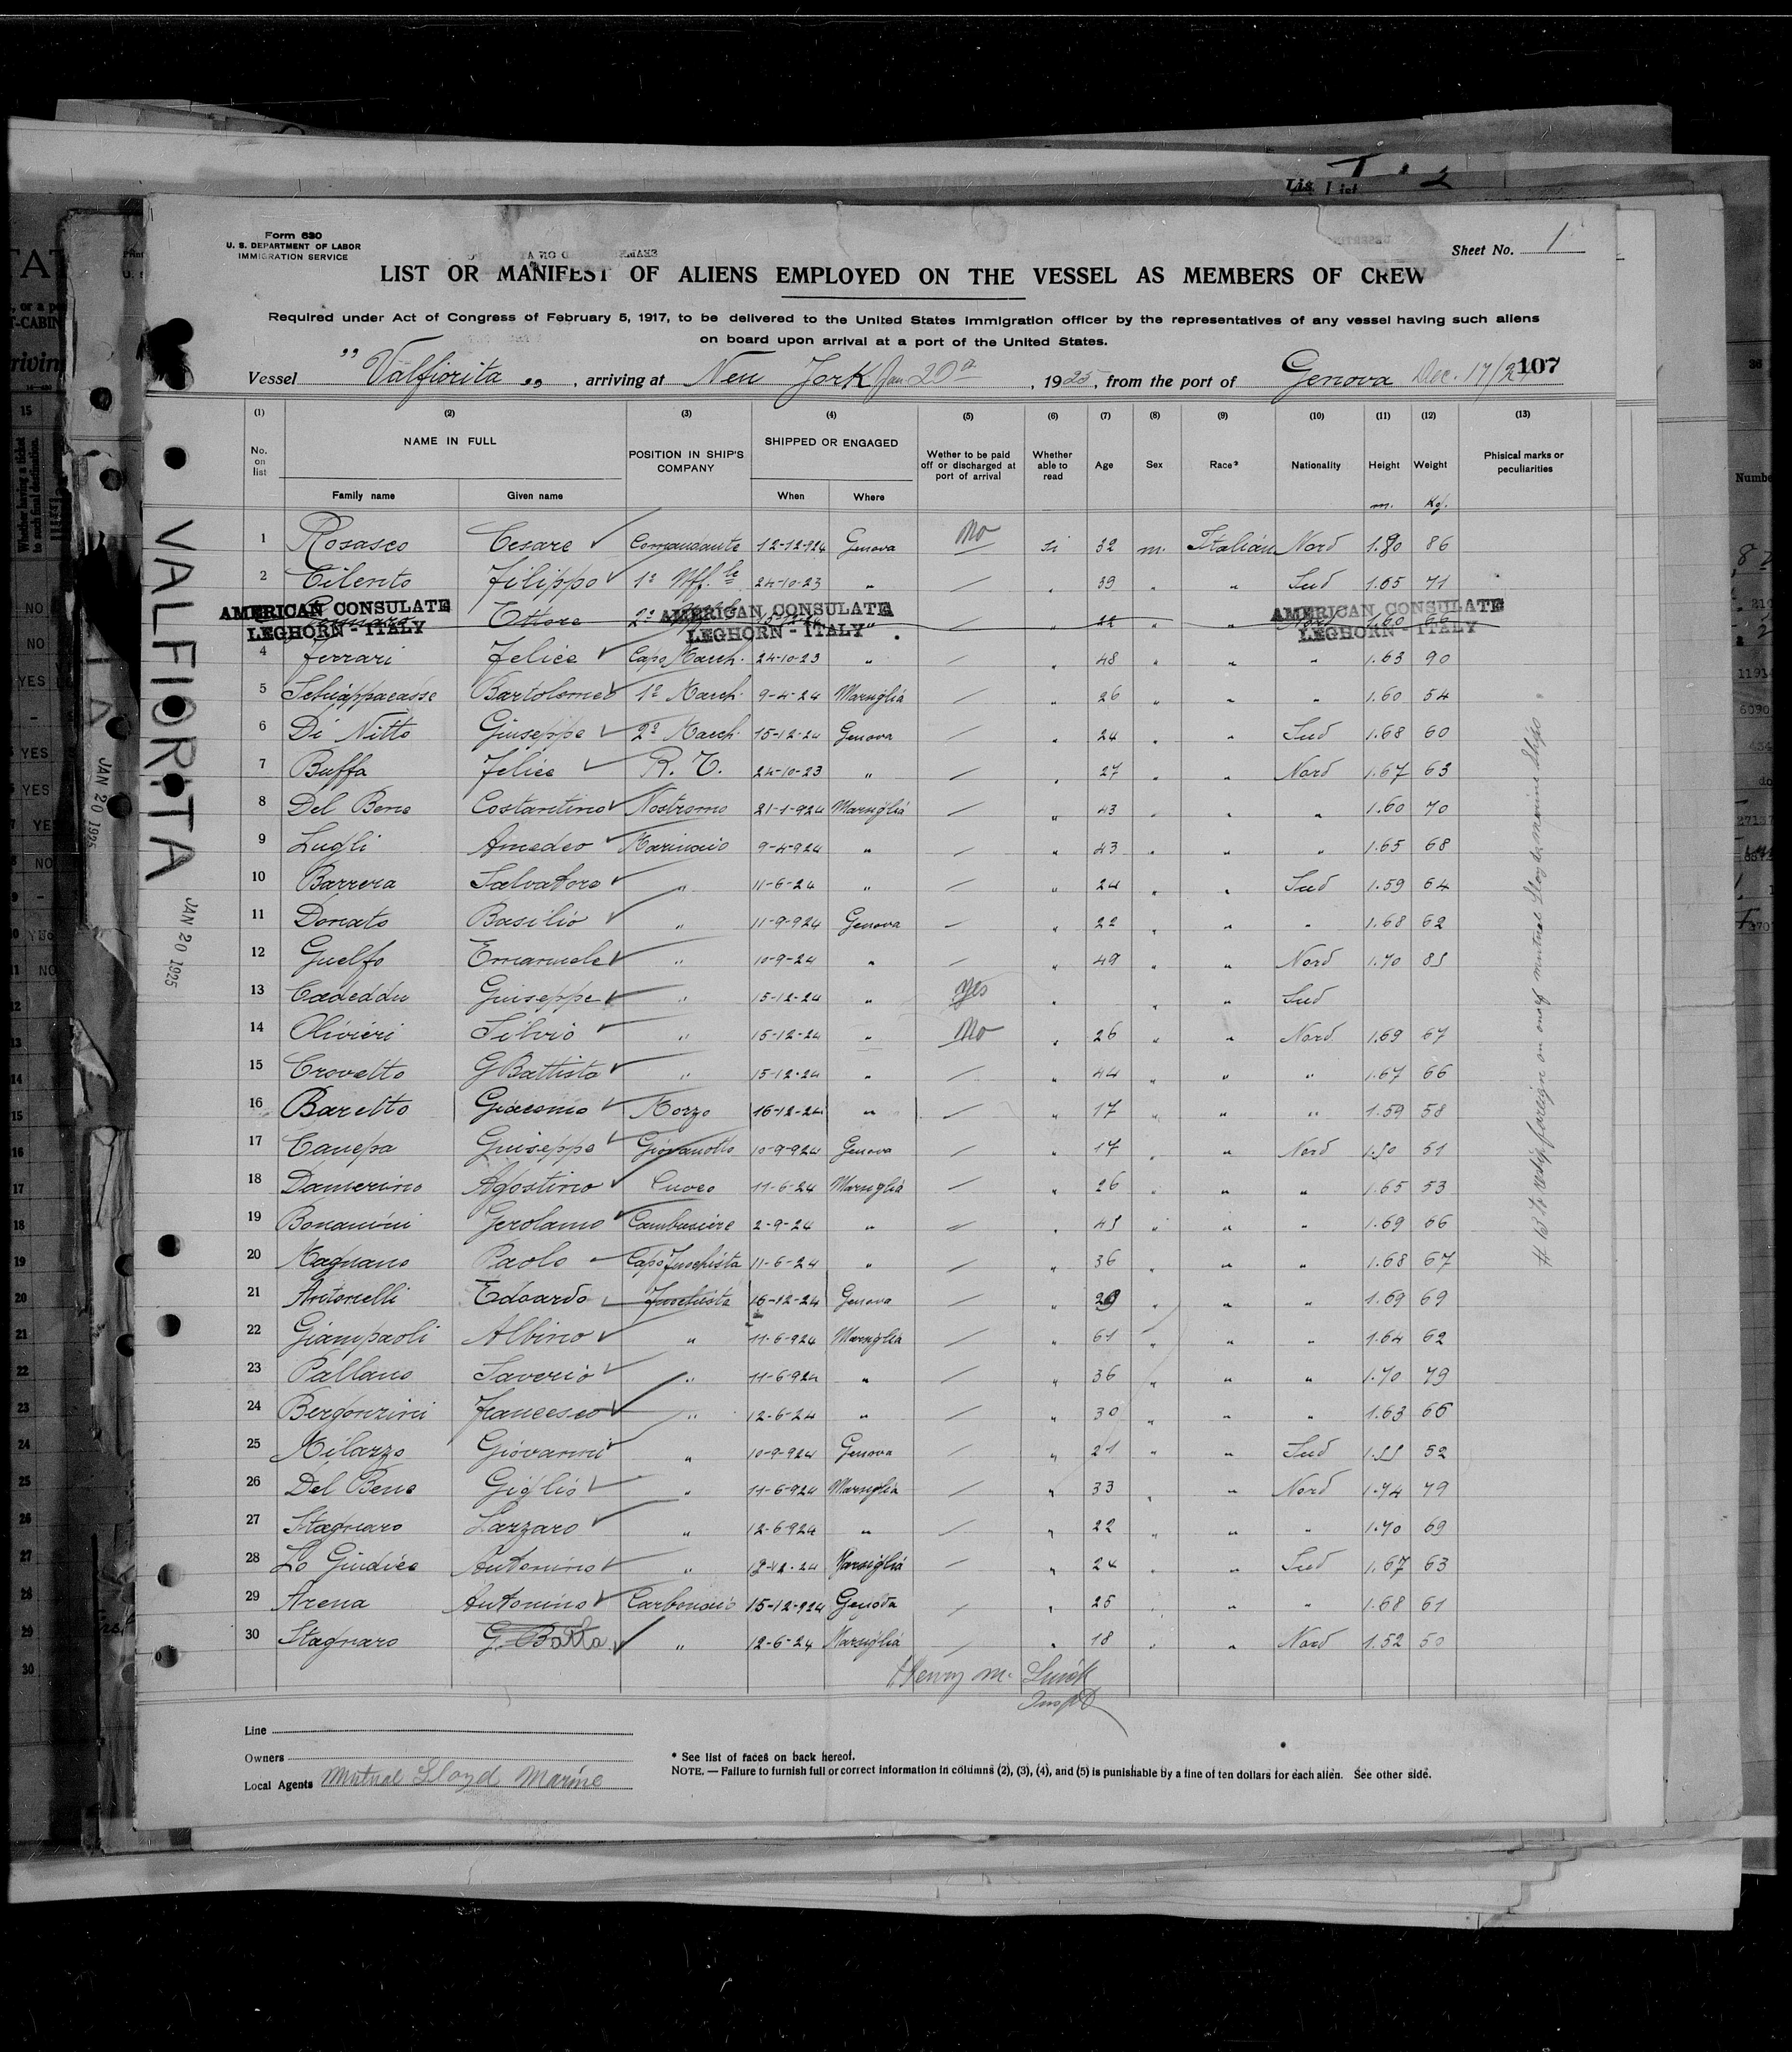 Form 630
U. S. DEPARTMENT OF LABOR
IMMIGRATION SERVICE
Sheet No. 1
LIST OR MANIFEST OF ALIENS EMPLOYED ON THE VESSEL AS MEMBERS OF CREW
Required under Act of Congress of February 5, 1917, to be delivered to the United States Immigration officer by the representatives of any vessel having such aliens
on board upon arrival at a port of the United States.
Vessel "Valfiorita", arriving at New York Jan 20th, 1925, from the port of Genova Dec. 17/24 107
(1) (2) (3) (4) (5) (6) (7) (8) (9) (10) (11) (12) (13)
No. on list NAME IN FULL Family name Given name POSITION IN SHIP'S COMPANY SHIPPED OR ENGAGED When Where Wether to be paid off or discharged at port of arrival Whether able to read Age Sex Race* Nationality Height m. Weight Kg. Phisical marks or peculiarities
1 Rosasco Cesare Comandante 12-12-924 Genova No si 32 m. Italian Nord 1.80 86
2 Cilento Filippo 1º Uff.le 24-10-23 " " 39 " " Sud 1.65 71
AMERICAN CONSULATE LEGHORN - ITALY Ettore 2º AMERICAN CONSULATE LEGHORN - ITALY AMERICAN CONSULATE LEGHORN - ITALY
4 Ferrari Felice Capo Macch. 24-10-23 " " 48 " " " 1.63 90
5 Schiappacasse Bartolomeo 1º Macch. 9-4-24 Marsiglia " 26 " " " 1.60 54
6 Di Nitto Giuseppe 2º Macch. 15-12-24 Genova " 24 " " Sud 1.68 60
7 Buffa Felice R. T. 24-10-23 " " 27 " " Nord 1.67 63
8 Del Bene Costantino Nostromo 21-1-924 Marsiglia " 43 " " " 1.60 70
9 Lugli Amedeo Marinaio 9-4-924 " " 43 " " " 1.65 68
10 Barrera Salvatore " 11-6-24 " " 24 " " Sud 1.59 64
11 Donato Basilio " 11-9-924 Genova " 22 " " " 1.68 62
12 Guelfo Emanuele " 10-9-24 " " 49 " " Nord 1.70 85
13 Cadeddu Giuseppe " 15-12-24 " yes " " " Sud
14 Olivieri Silvio " 15-12-24 " No " 26 " " Nord 1.69 67
15 Crovetto G Battista " 15-12-24 " " 44 " " " 1.67 66
16 Baretto Giacomo Mozzo 16-12-24 " " 17 " " " 1.59 58
17 Canepa Giuseppe Giovanotto 10-9-924 Genova " 17 " " Nord 1.50 51
18 Damerino Agostino Cuoco 11-6-24 Marsiglia " 26 " " " 1.65 53
19 Bonamini Gerolamo Cambusiere 2-9-24 " " 45 " " " 1.69 66
20 Magnano Paolo Capo Fuochista 11-6-24 " " 36 " " " 1.68 67
21 Antonelli Edoardo Fuochista 16-12-24 Genova " " " " 1.69 69
22 Giampaoli Albino " 11-6-924 Marsiglia " 61 " " " 1.64 62
23 Pallano Saverio " 11-6-924 " " 36 " " " 1.70 79
24 Bergonzini Francesco " 12-6-24 " " 30 " " " 1.63 66
25 Milazzo Giovanni " 10-9-924 Genova " 21 " " Sud 1.55 52
26 Del Bene Giglio " 11-6-924 Marsiglia " 33 " " Nord 1.74 79
27 Stagnaro Lazzaro " 12-6-924 " " 22 " " " 1.70 69
28 Lo Giudice Antonino " Marsiglia " 24 " " Sud 1.67 63
29 Arena Antonino Carbonaio 15-12-924 Genova " 25 " " " 1.68 61
30 Stagnaro G. Batta " 12-6-24 Marsiglia " 18 " " Nord 1.52 50
Henry M.
Line
Owners
Local Agents Mutual Lloyd Marine
* See list of races on back hereof.
NOTE. — Failure to furnish full or correct information in columns (2), (3), (4), and (5) is punishable by a fine of ten dollars for each alien. See other side.
VALFIORITA
JAN 20 1925
JAN 20 1925